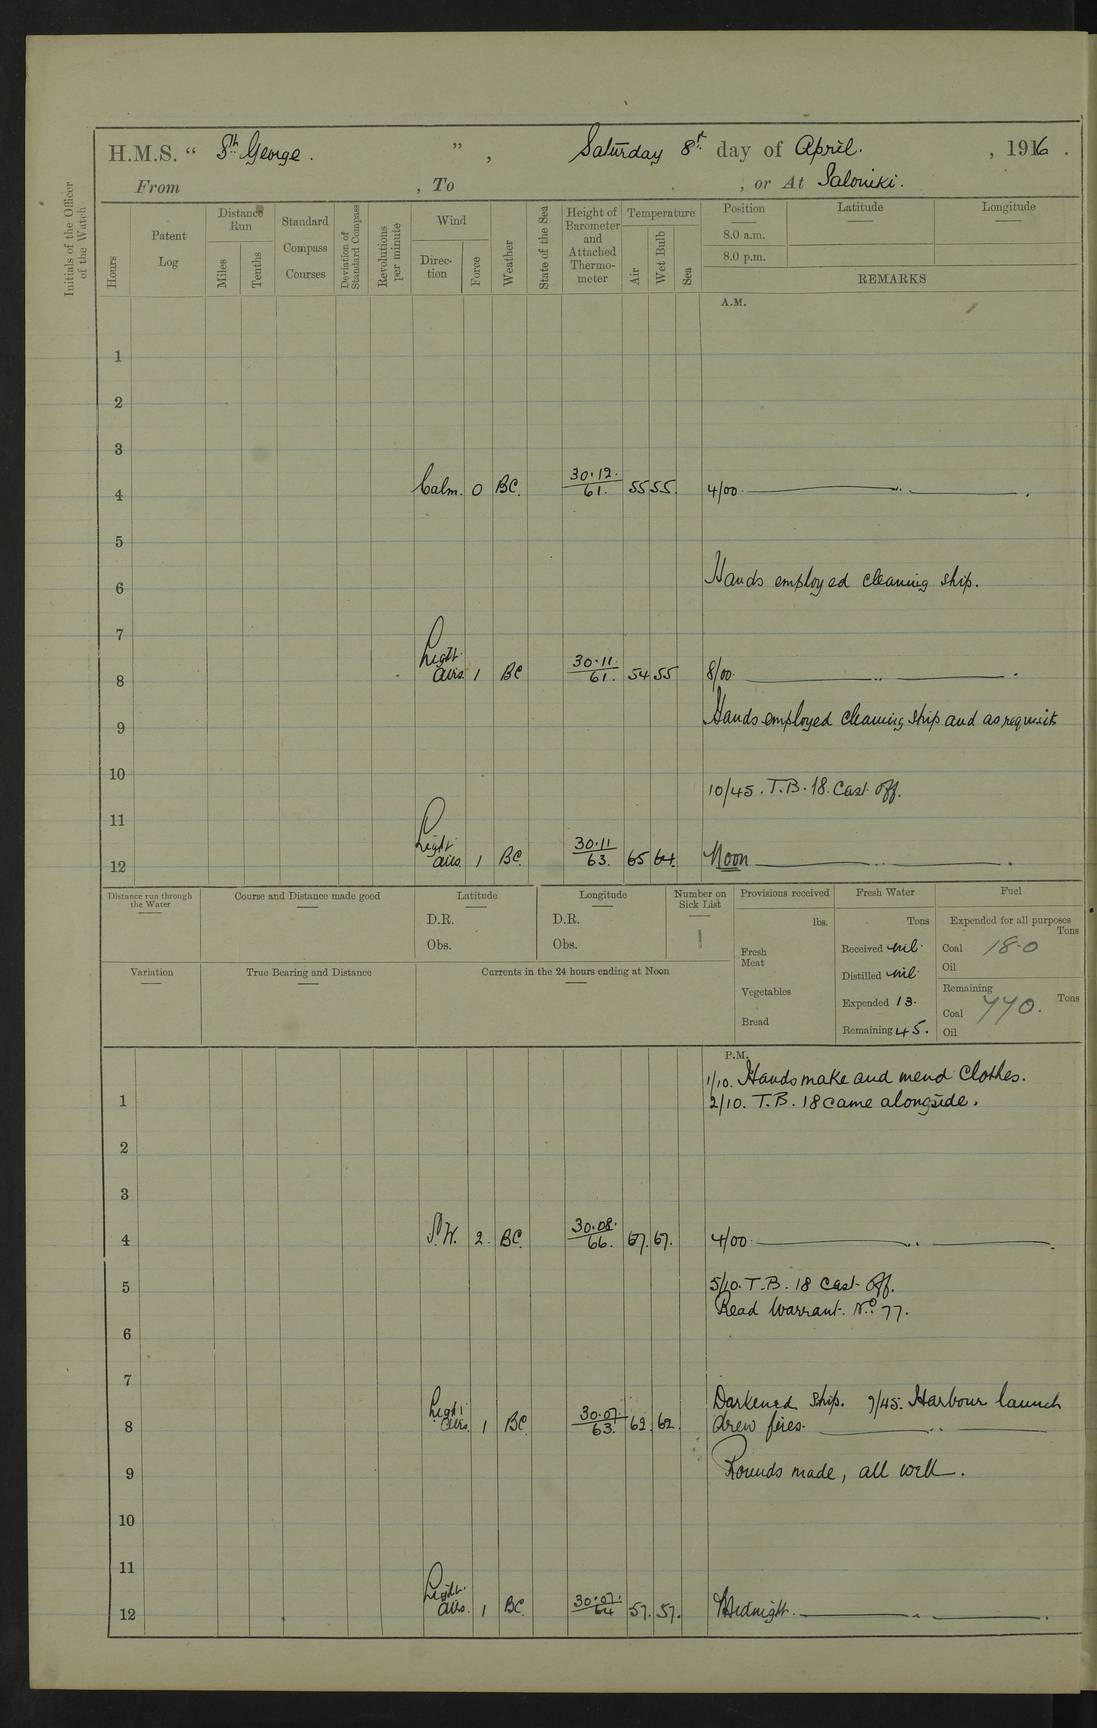 H.M.S. “ St. George. ” , Saturday 8th. day of April. , 1916 .
From , To , or At Saloniki.
Initials of the Officer of the Watch
Hours
Patent Log
Distance Run
Miles
Tenths
Standard Compass Courses
Deviation of Standard Compass
Revolutions per minute
Wind
Direc-tion
Force
Weather
State of the Sea
Height of Barometer and Attached Thermo-meter
Temperature
Air
Wet Bulb
Sea
Position Latitude Longitude
8.0 a.m.
8.0 p.m.
REMARKS
A.M.
1
2
3
4 Calm. 0 BC. 30.12. 61. 55 55. 4/00.
5
6 Hands employed cleaning ship.
7
8 Light airs 1 BC 30.11. 61. 54 55 8/00.
9 Hands employed cleaning ship and as requisite
10 10/45. T.B. 18. Cast off.
11
12 Light airs 1 BC. 30.11 63. 65 64. Noon
Distance run through the Water
Course and Distance made good
Latitude
D.R.
Obs.
Longitude
D.R.
Obs.
Number on Sick List
1
Provisions received
lbs.
Fresh Meat
Vegetables
Bread
Fresh Water
Tons
Received nil.
Distilled nil.
Expended 13.
Remaining 45.
Fuel
Expended for all purposes
Tons
Coal 18.0
Oil
Remaining
Tons
Coal 770.
Oil
Variation
True Bearing and Distance
Currents in the 24 hours ending at Noon
P.M.
1/10. Hands make and mend clothes.
1 2/10. T.B. 18 came alongside.
2
3
4 S.W. 2. BC. 30.08. 66. 67. 67. 4/00.
5 5/10. T.B. 18 Cast off.
Read Warrant. No. 77.
6
7
Darkened ship. 7/45. Harbour launch
8 Light airs. 1 BC 30.07. 63. 62. 62. drew fires.
9 Rounds made, all well.
10
11
12 Light airs. 1 BC. 30.07. 64 57. 57. Midnight.